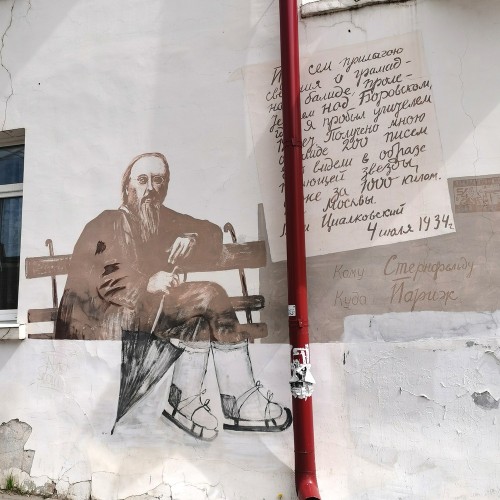 сем прилагаю
о громад-
болиде, проле-
над Боровском,
я пробыл учителем
Получено мною
болиде 200 писем
видем в образе
звезды
за 1000 килом.
Москвы.
Циалковский
4 июля 1934г.
Кому Стернфельду
Куда Париж